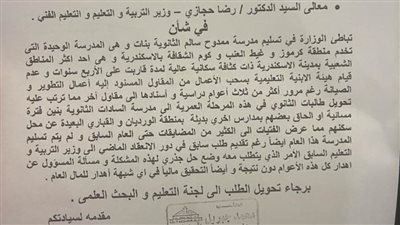 • معالى السيد الدكتور / رضا حجازي – وزير التربية و التعليم و التعليم الفني .
في شأن
تباطئ الوزارة في تسليم مدرسة ممدوح سالم الثانوية بنات و هى المدرسة الوحيدة التى
تخدم منطقة كرموز و غيط العنب و كوم الشقافة بالاسكندرية و هى احد اكثر المناطق
الشعبية بمدينة الاسكندرية ذات كثافة سكانية عالية لمدة قاربت على الأربع سنوات و عدم
قيام هيئة الابنية التعليمية بسحب الأعمال من المقاول المسند إليه أعمال التطوير و
الصيانة رغم مرور أكثر من ثلاث أعوام دراسية و أسنادها الى مقاول أخر مما ترتب عليه
تحويل طالبات الثانوي في هذه المرحلة العمرية الى مدرسة السادات الثانوية بنين فترة
مسائية او الحاق بعضهم بمدارس اخري بديلة بمنطقة الورديان و القباري البعيدة عن محل
سكنهم مما عرض الفتيات الى الكثير من المضايقات حتى العام السابق و لم يتم تسليم
المدرسة هذا العام أيضاً رغم تقديم طلب سابق في دور الانعقاد الماضي الى وزير التربية و
التعليم السابق الأمر الذي يتطلب معه وضع حل جذري لهذه المشكلة و مسألة المسؤول عن
اهدار كل هذه الأعوام دون نتيجة و أيضاً التحقيق مالياً في اي شبهة أهدار للمال العام .
برجاء تحويل الطلب الى لجنة التعليم و البحث العلمى .
مقدمه لسيادتكم